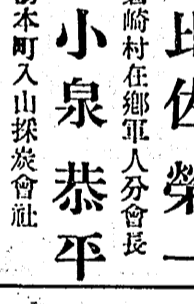 比佐榮一
崎村在鄕軍人分會長
小泉恭平
本町入山採炭會社